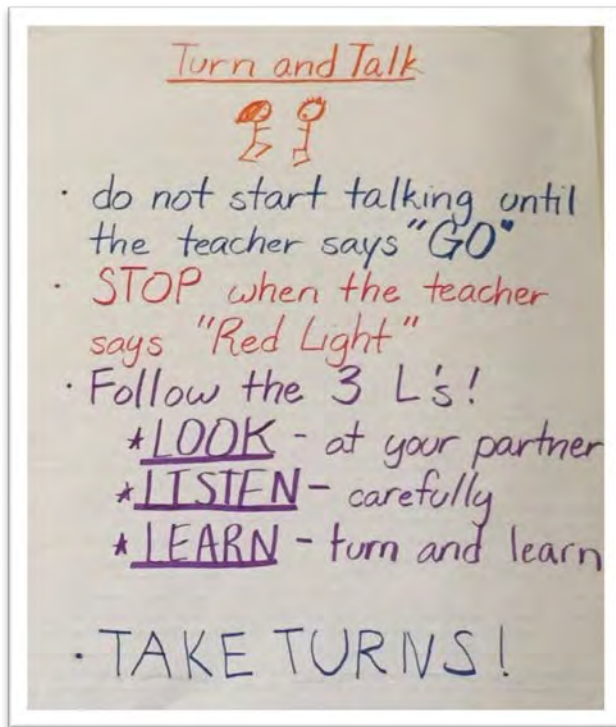 Turn and Talk
· do not start talking until
the teacher says "GO"
· STOP when the teacher
says "Red Light"
· Follow the 3 L's!
* LOOK - at your partner
* LISTEN - carefully
* LEARN - turn and learn
· TAKE TURNS!